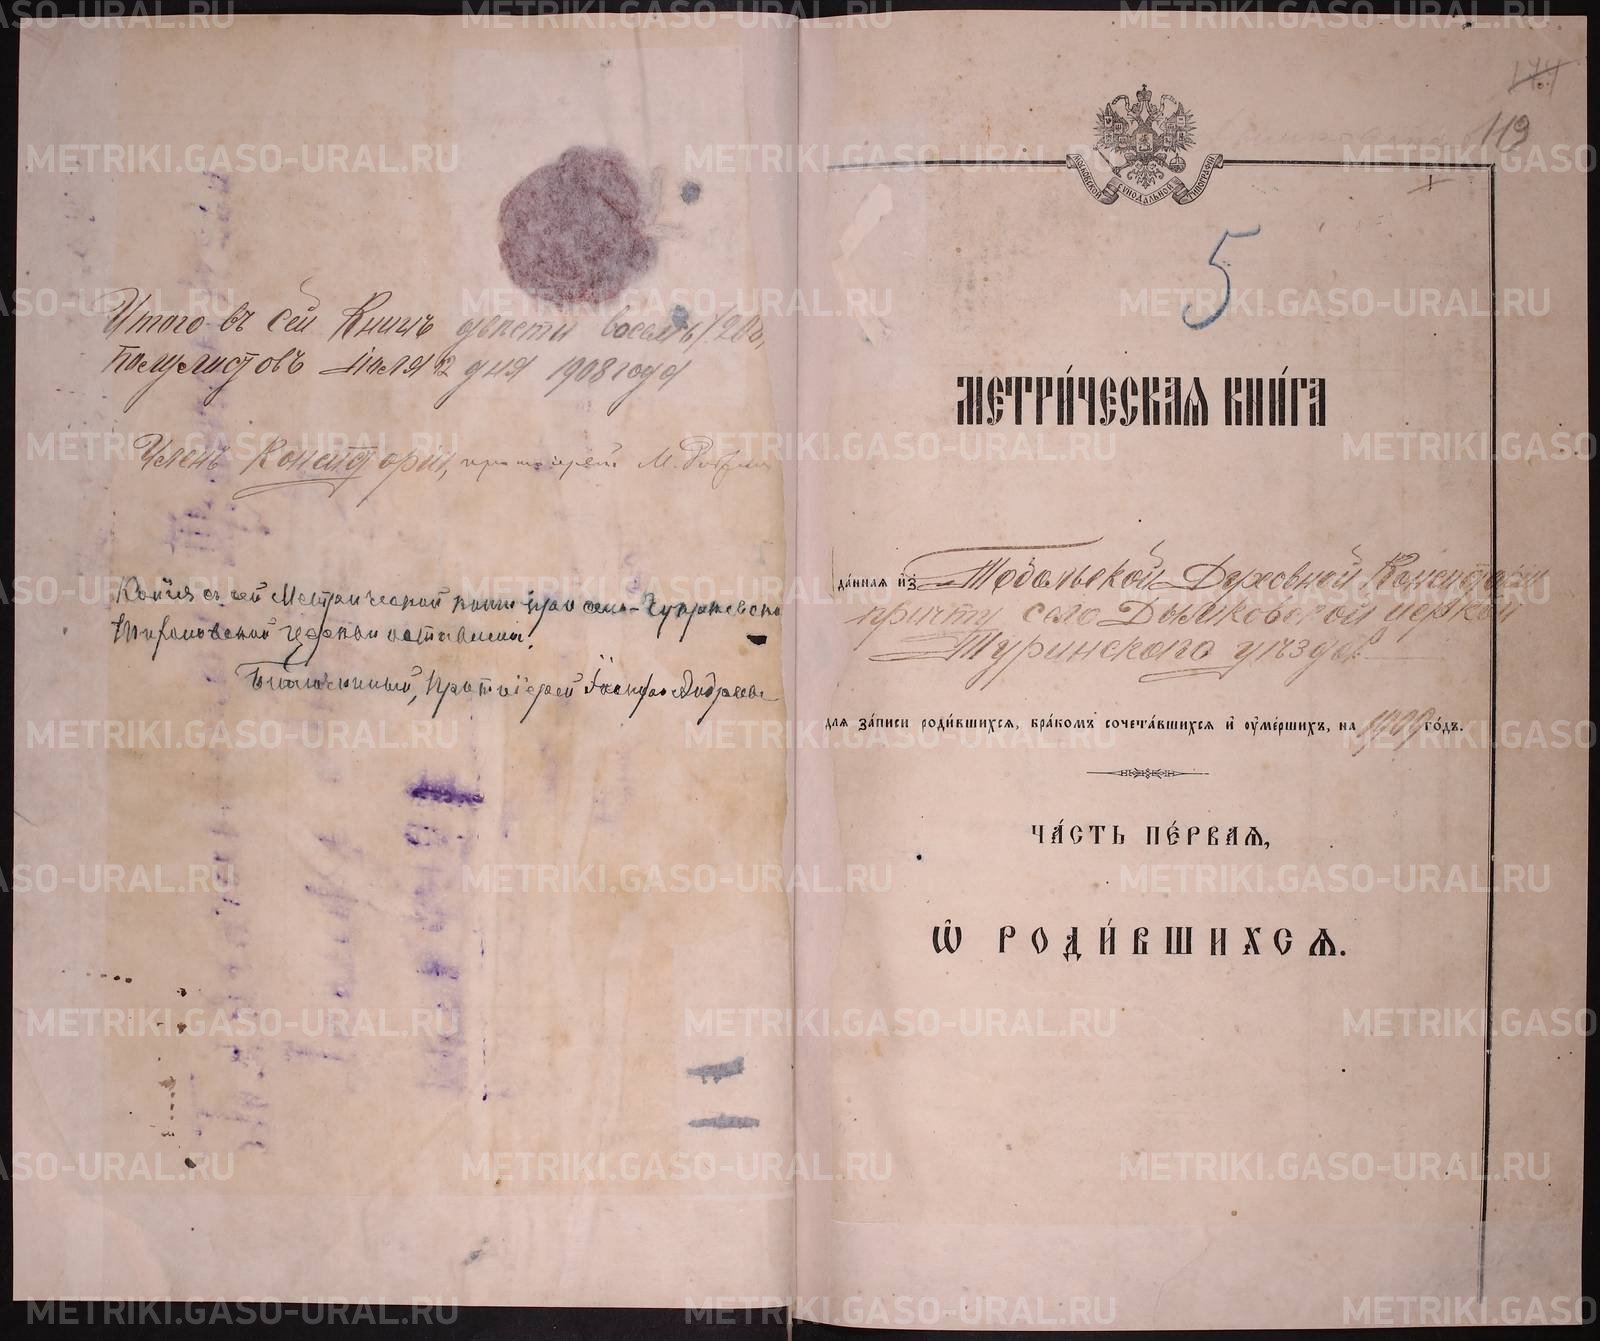 Итого въ сей Книгѣ двѣсти восемь /208/
Полулистовъ Июля 2 дня 1908 года
Членъ Консисторіи, протоіерей М.
Копія съ сей Метрической книги при села-
церкви оставлена.
Благочинный, Протоіерей Андреевъ
119
МОСКОВСКОЙ СѴНОДАЛЬНОЙ ТИПОГРАФІИ
5
МЕТРИ́ЧЕСКАѦ КНИ́ГА
да́нная и҆з Тобольской Духовной Консисторіи
причту села Дымковской церкви
Туринскаго уѣзда
для за́писи роди́вшихся, бра́комъ сочета́вшихся и҆ оу҆ме́ршихъ, на 1909 го́дъ.
ЧА́СТЬ ПЕ́РВАѦ,
Ѡ҆ РОДИ́ВШИХСѦ.
METRIKI.GASO-URAL.RU